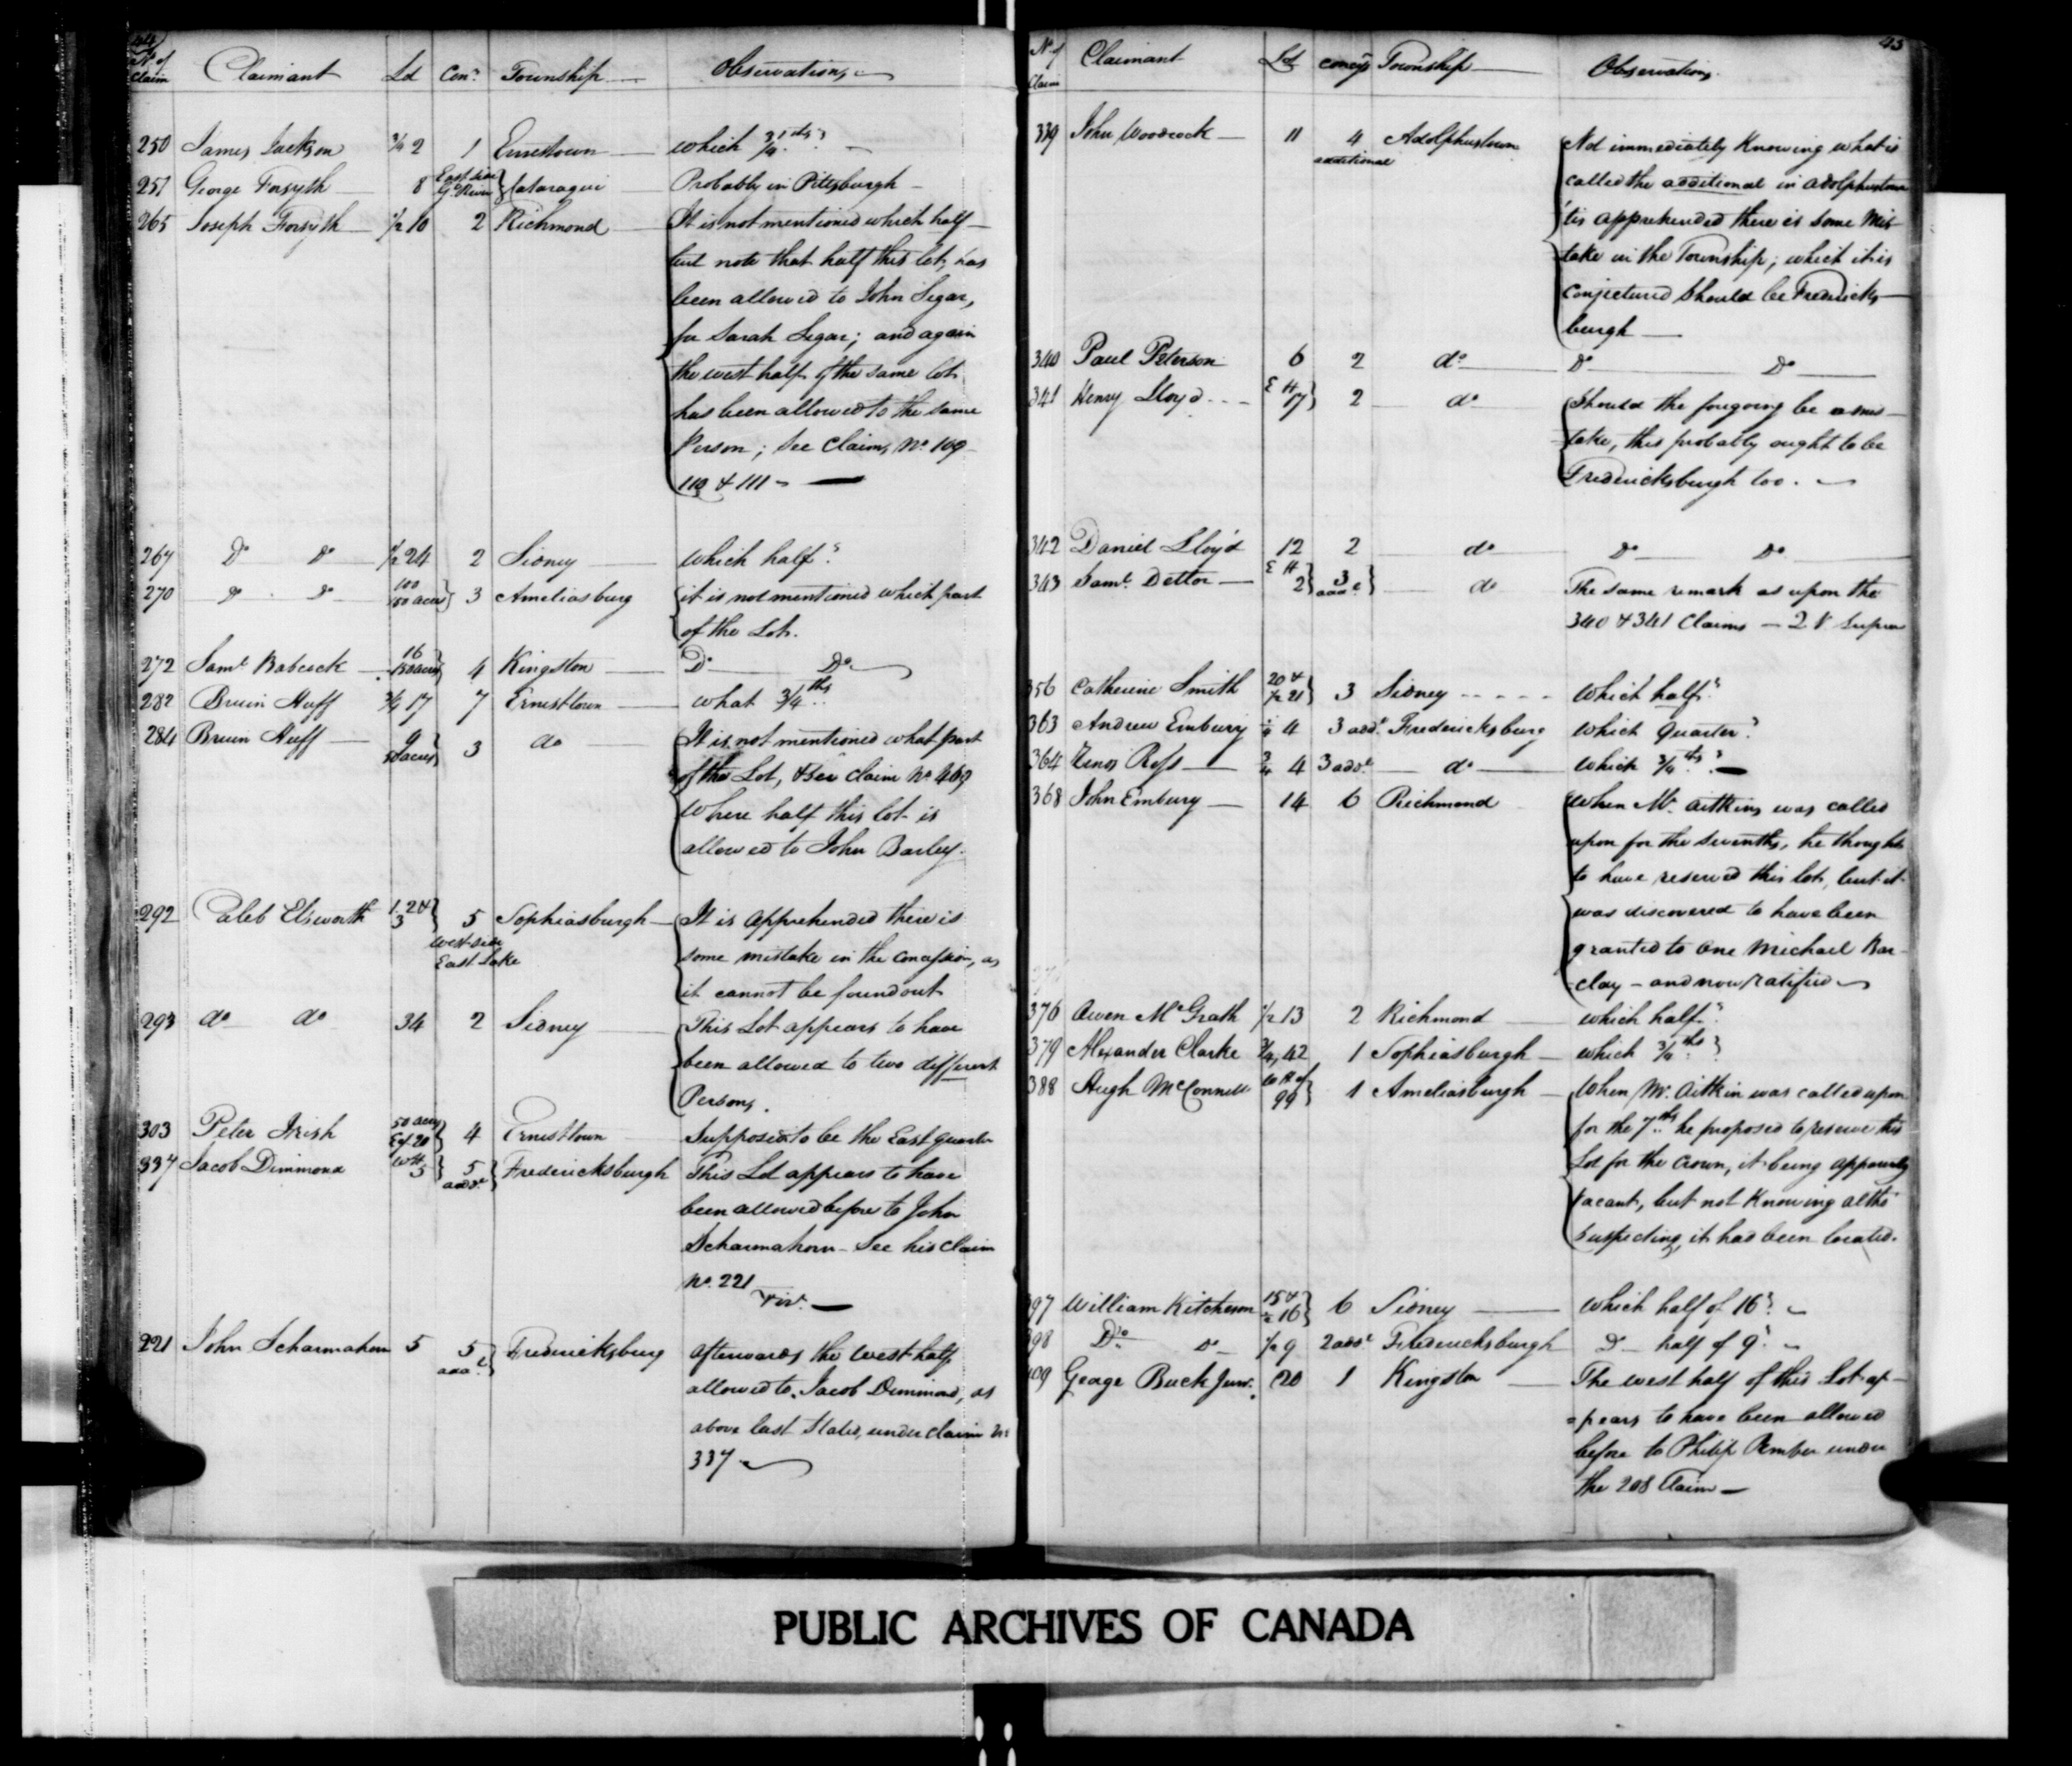 44
No. of Claim Claimant Lot Con.n Township Observations
250 James Jackson 3/4 2 1 Ernestown which 3/4ths?
251 George Forsyth 8 East side Gt. River } Cataraqui Probably in Pittsburgh
265 Joseph Forsyth 1/2 10 2 Richmond It is not mentioned which half
but note that half this lot, has
been allowed to John Segar,
for Sarah Segar; and again
the west half of the same lot
has been allowed to the same
Person; see Claims No. 109
110 & 111
267 Do Do 1/2 24 2 Sidney which half?
270 Do Do 100 150 acres } 3 Ameliasburg it is not mentioned which part
of the Lot.
272 Saml. Babcock 16 150 acres } 4 Kingston Do Do
282 Bruin Huff 3/4 17 7 Ernesttown what 3/4ths
284 Bruin Huff 9 50 acres } 3 do It is not mentioned what part
of the Lot, & see claim No. 469
where half this lot is
allowed to John Barley.
292 Caleb Elsworth 1. 2 & 3 } 5 Sophiasburgh It is apprehended there is
west side
East Lake
some mistake in the Concession, as
it cannot be found out
293 do do 34 2 Sidney This Lot appears to have
been allowed to two different
Persons.
303 Peter Irish 50 acres E of 20 } 4 Ernesttown Supposed to be the East quarter
337 Jacob Dimmond W H 5 } 5 addl. } Fredericksburgh This Lot appears to have
been allowed before to John
Scharmahorn - See his claim
No. 221
Viz.
221 John Scharmahorn 5 5 addl. } Fredericksburg afterwards the West half
allowed to Jacob Dimmond, as
above last stated, under claim No
337
45
No. of Claim Claimant Lot conc.ns Township Observations.
339 John Woodcock 11 4 additional Adolphustown Not immediately Knowing what is
called the additional in Adolphustown
'tis apprehended there is some Mis-
take in the Township; which it is
conjectured should be Fredericks-
burgh
340 Paul Peterson 6 2 do Do Do
341 Henry Lloyd E H 17 } 2 do Should the foregoing be a mis-
take, this probably ought to be
Fredericksburgh too.
342 Daniel Lloyd 12 2 do Do Do
343 Saml. Dettor E H 2 } 3 addl. } do The same remark as upon the
340 & 341 Claims - 2 V. Supra
356 Catherine Smith 20 & 1/2 21 } 3 Sidney which half?
363 Andrew Embury 1/4 4 3 addl. Fredericksburg which Quarter?
364 Zenos Ross 3/4 4 3 addl. do which 3/4ths?
368 John Embury 14 6 Richmond When Mr. Aitkins was called
upon for the sevenths, he thought
to have reserved this lot, but it
was discovered to have been
granted to one Michael Bar-
clay - and now ratified
376 Owen McGrath 1/2 13 2 Richmond which half?
379 Alexander Clarke 3/4, 42 1 Sophiasburgh which 3/4ths?
388 Hugh McConnell W H of 99 } 1 Ameliasburgh When Mr. Aitkin was called upon
for the 7ths he proposed to reserve this
Lot for the Crown, it being apparently
vacant, but not Knowing altho'
suspecting, it had been located.
397 William Kitcheson 15 & 1/2 16 } 6 Sidney which half of 16?
398 Do Do 1/2 9 2 addl. Fredericksburgh Do half of 9?
409 George Buck Junr. 20 1 Kingston The west half of this Lot ap-
=pears to have been allowed
before to Philip Pember under
the 208 Claim
PUBLIC ARCHIVES OF CANADA